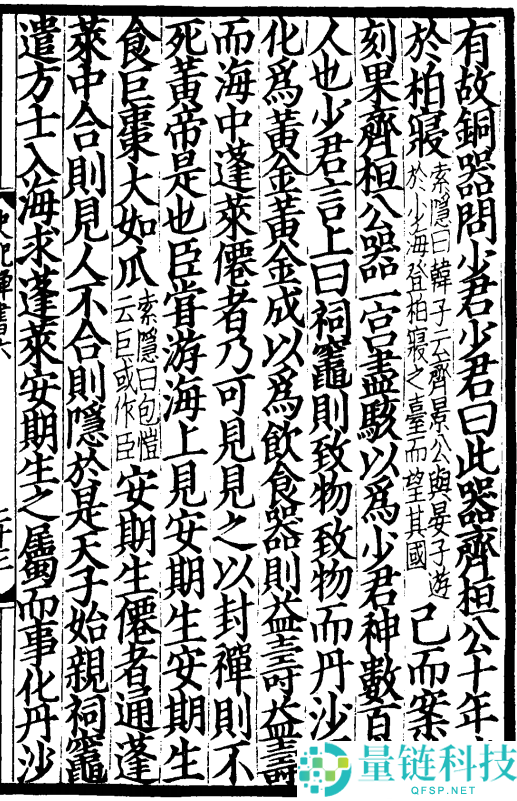 有故銅器問少君少君曰此器齊桓公十年
於柏寢
索隱曰韓子云齊景公與晏子遊
於少海登柏寢之臺而望其國
已而案
刻果齊桓公器一宮盡駭以爲少君神數百
人也少君言上曰祠竈則致物致物而丹沙
化爲黃金黃金成以爲飲食器則益壽益壽
而海中蓬萊僊者乃可見見之以封禪則不
死黃帝是也臣甞游海上見安期生安期生
食巨棗大如瓜
索隱曰包愷
云巨或作臣
安期生僊者通蓬
萊中合則見人不合則隱於是天子始親祠竈
遣方士入海求蓬萊安期生之屬而事化丹沙
量链科技
QFSP.NET